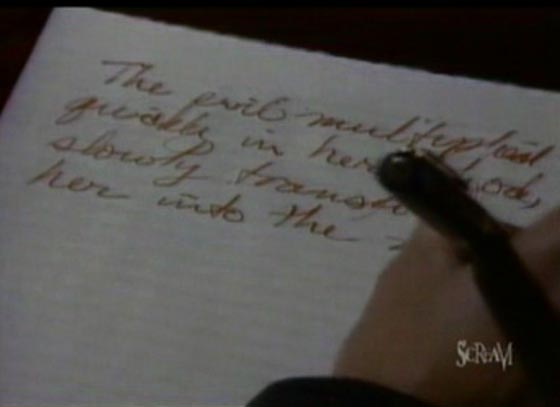 The evil multiplied
quickly in her blood,
slowly
her into the
SCREAM